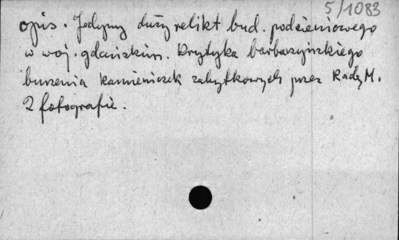 5/1083
opis. Jedyny duży relikt bud. podcieniowego
w woj. gdańskim. Krytyka barbarzyńskiego
burzenia kamieniczek zabytkowych przez Radę M.
2 fotografie.